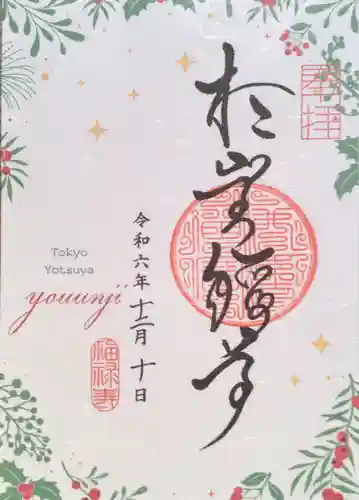 奉拝
於岩稲荷
令和六年十二月十日
福禄寿
Tokyo
Yotsuya
youunji